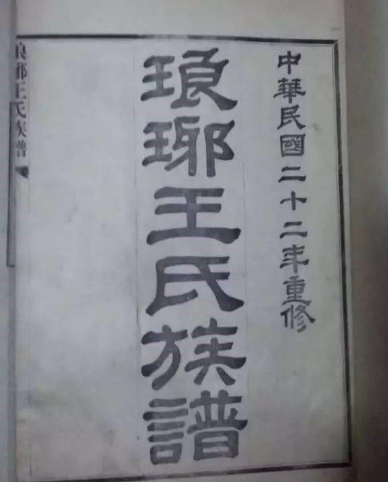 中華民國二十二年重修
琅瑘王氏族譜
琅瑘王氏族譜